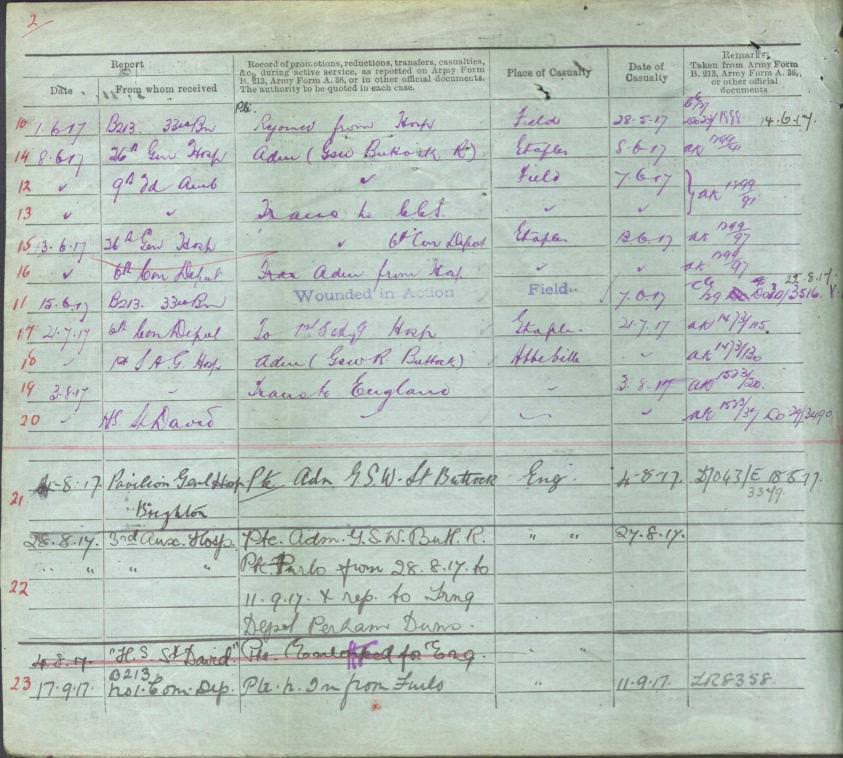 2
Report
Record of promotions, reductions, transfers, casualties, &c., during active service, as reported on Army Form B. 213, Army Form A. 36, or in other official documents. The authority to be quoted in each case.
Place of Casualty
Date of Casualty
Remarks
Taken from Army Form B. 213, Army Form A. 36, or other official documents
Date
From whom received
Pte.
10 1.6.17 B213. 33rd Bn Rejoined from Hosp Field 28.5.17 14.6.17.
14 8.6.17 26th Gen Hosp Adm (Gsw Buttock R) Etaples 8.6.17 AK 1799/91
12 " 9th Fd Amb " Field 7.6.17 AK 1799/91
13 " " Trans to CCS. " "
15 13.6.17 26th Gen Hosp " 6th Con Depot Etaples 13.6.17 AK 1799/97
16 " 6th Con Depot Adm from Hosp " " AK 1799/97
11 15.6.17 B213. 33rd Bn Wounded in Action Field 7.6.17 22.8.17.
17 21.7.17 6th Con Depot To 1st Hosp Etaples 21.7.17 AK 1473/115.
18 " 1st S.A.G. Hosp Adm (Gsw R. Buttock) Abbeville " AK 1473/130
19 3.8.17 " Trans to England " 3.8.17 AK 1523/20.
20 " HS. St David " " " AK
21 4.8.17. Pavilion Genl Hosp Pte Adm G.S.W. Buttock Eng. 4.8.17. D/043/E
Brighton 3349.
28.8.17. 3rd Aux. Hosp. Pte. Adm. G.S.W. Butt. R. " " 27.8.17.
" " " " Pte. Furlo from 28.8.17 to
22 11.9.17. & rep. to Trng
Depot Perham Duns.
4.8.17. "H.S St David." Pte. for Eng.
B213
23 17.9.17. No1. Com. Dep. Pte. m. In from Furlo " 11.9.17. LR8358.